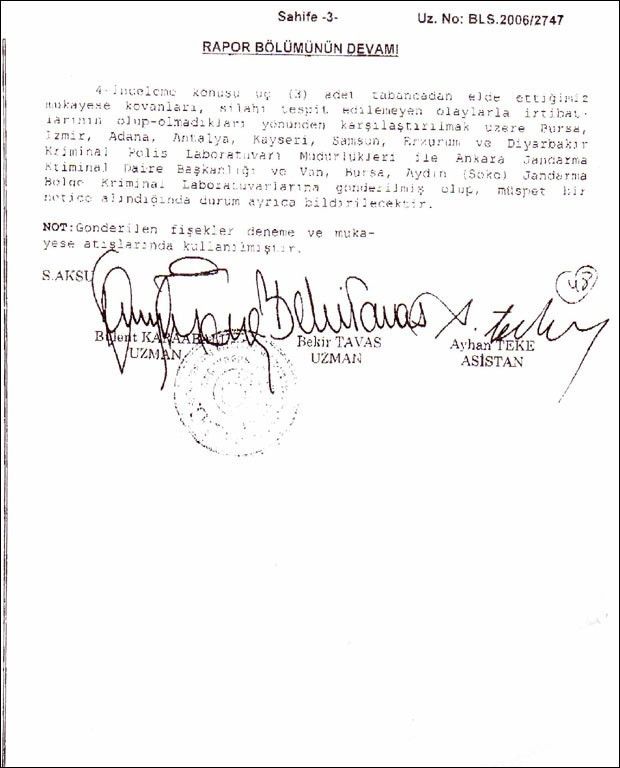 Sahife -3-
Uz. No: BLS.2006/2747
RAPOR BÖLÜMÜNÜN DEVAMI
4-İnceleme konusu üç (3) adet tabancadan elde ettiğimiz
mukayese kovanları, silahı tespit edilemeyen olaylarla irtibat-
larının olup-olmadıkları yönünden karşılaştırılmak üzere Bursa,
İzmir, Adana, Antalya, Kayseri, Samsun, Erzurum ve Diyarbakır
Kriminal Polis Laboratuvarı Müdürlükleri ile Ankara Jandarma
Kriminal Daire Başkanlığı ve Van, Bursa, Aydın (Söke) Jandarma
Bölge Kriminal Laboratuvarlarına gönderilmiş olup, müspet bir
netice alındığında durum ayrıca bildirilecektir.
NOT:Gönderilen fişekler deneme ve muka-
yese atışlarında kullanılmıştır.
S.AKSU
48
Bülent
Bekir TAVAS
Ayhan TEKE
UZMAN
UZMAN
ASİSTAN